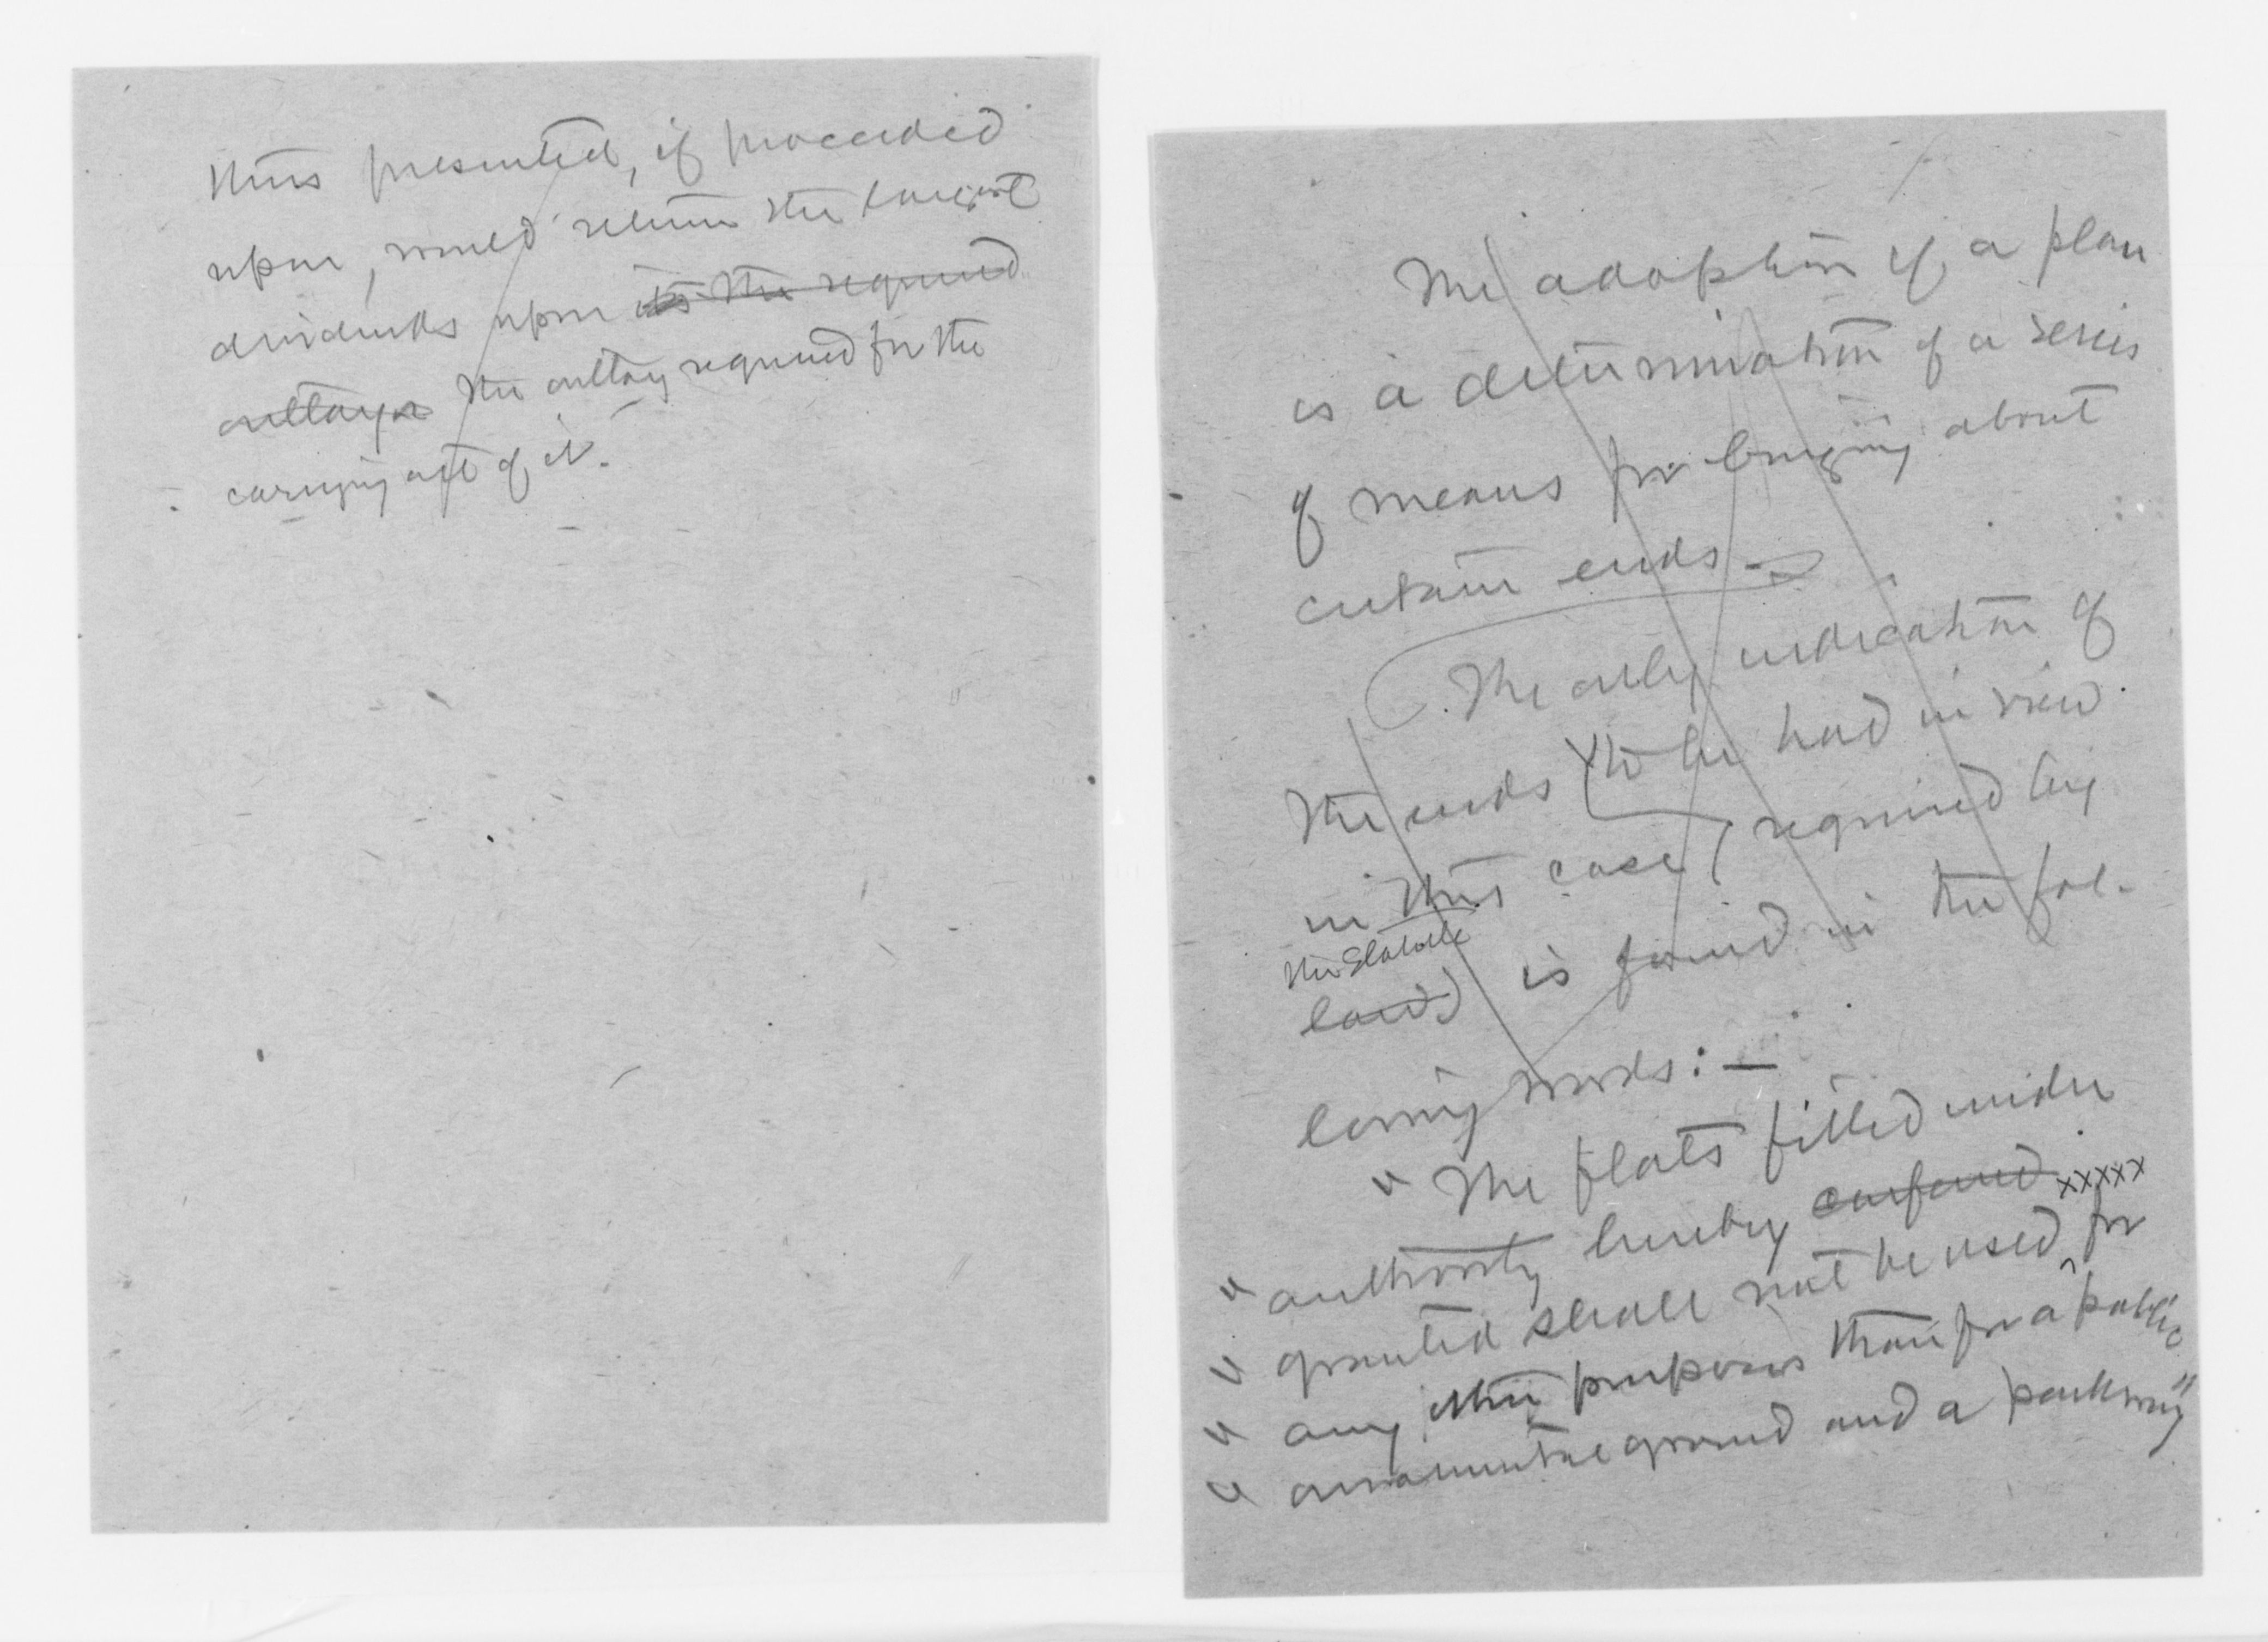 thus presented, if proceeded
upon, would return the largest
dividends upon its the required
outlays the outlay required for the
carrying out of it.
The adoption of a plan
is a determination of a series
of means for bringing about
certain ends.
The only indication of
the ends to be had in view
in this case, required by
the Statute
law is found in the fol-
lowing words: —
"The flats filled under
"authority hereby conferred xxxxx
"granted shall not be used, for
"any other purposes than for a public
"ornamental ground and a parkway"